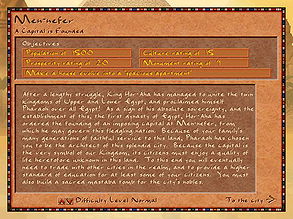 Men-nefer
A Capital is Founded
Objectives
Population of 1500
Culture rating of 15
Prosperity rating of 20
Monument rating of 9
Make a house evolve into a 'spacious apartment'
After a lengthy struggle, King Hor-Aha has managed to unite the twin
kingdoms of Upper and Lower Egypt, and proclaimed himself
Pharaoh over all Egypt! As a sign of his absolute sovereignty, and the
establishment of this, the first dynasty of Egypt, Hor-Aha has
ordered the founding of an imposing capital at Men-nefer, from
which he may govern this fledgling nation. Because of your family's
many generations of faithful service to this land, Pharaoh has chosen
you to be the architect of this splendid city. Because the capital is
the very symbol of our Kingdom, its citizens must enjoy a quality of
life heretofore unknown in this land. To this end you will eventually
need to trade with other cities in the valley, and to provide a higher
standard of education for at least some of your citizens. You must
also build a sacred mastaba tomb for the city's nobles.
Difficulty Level Normal
To the city